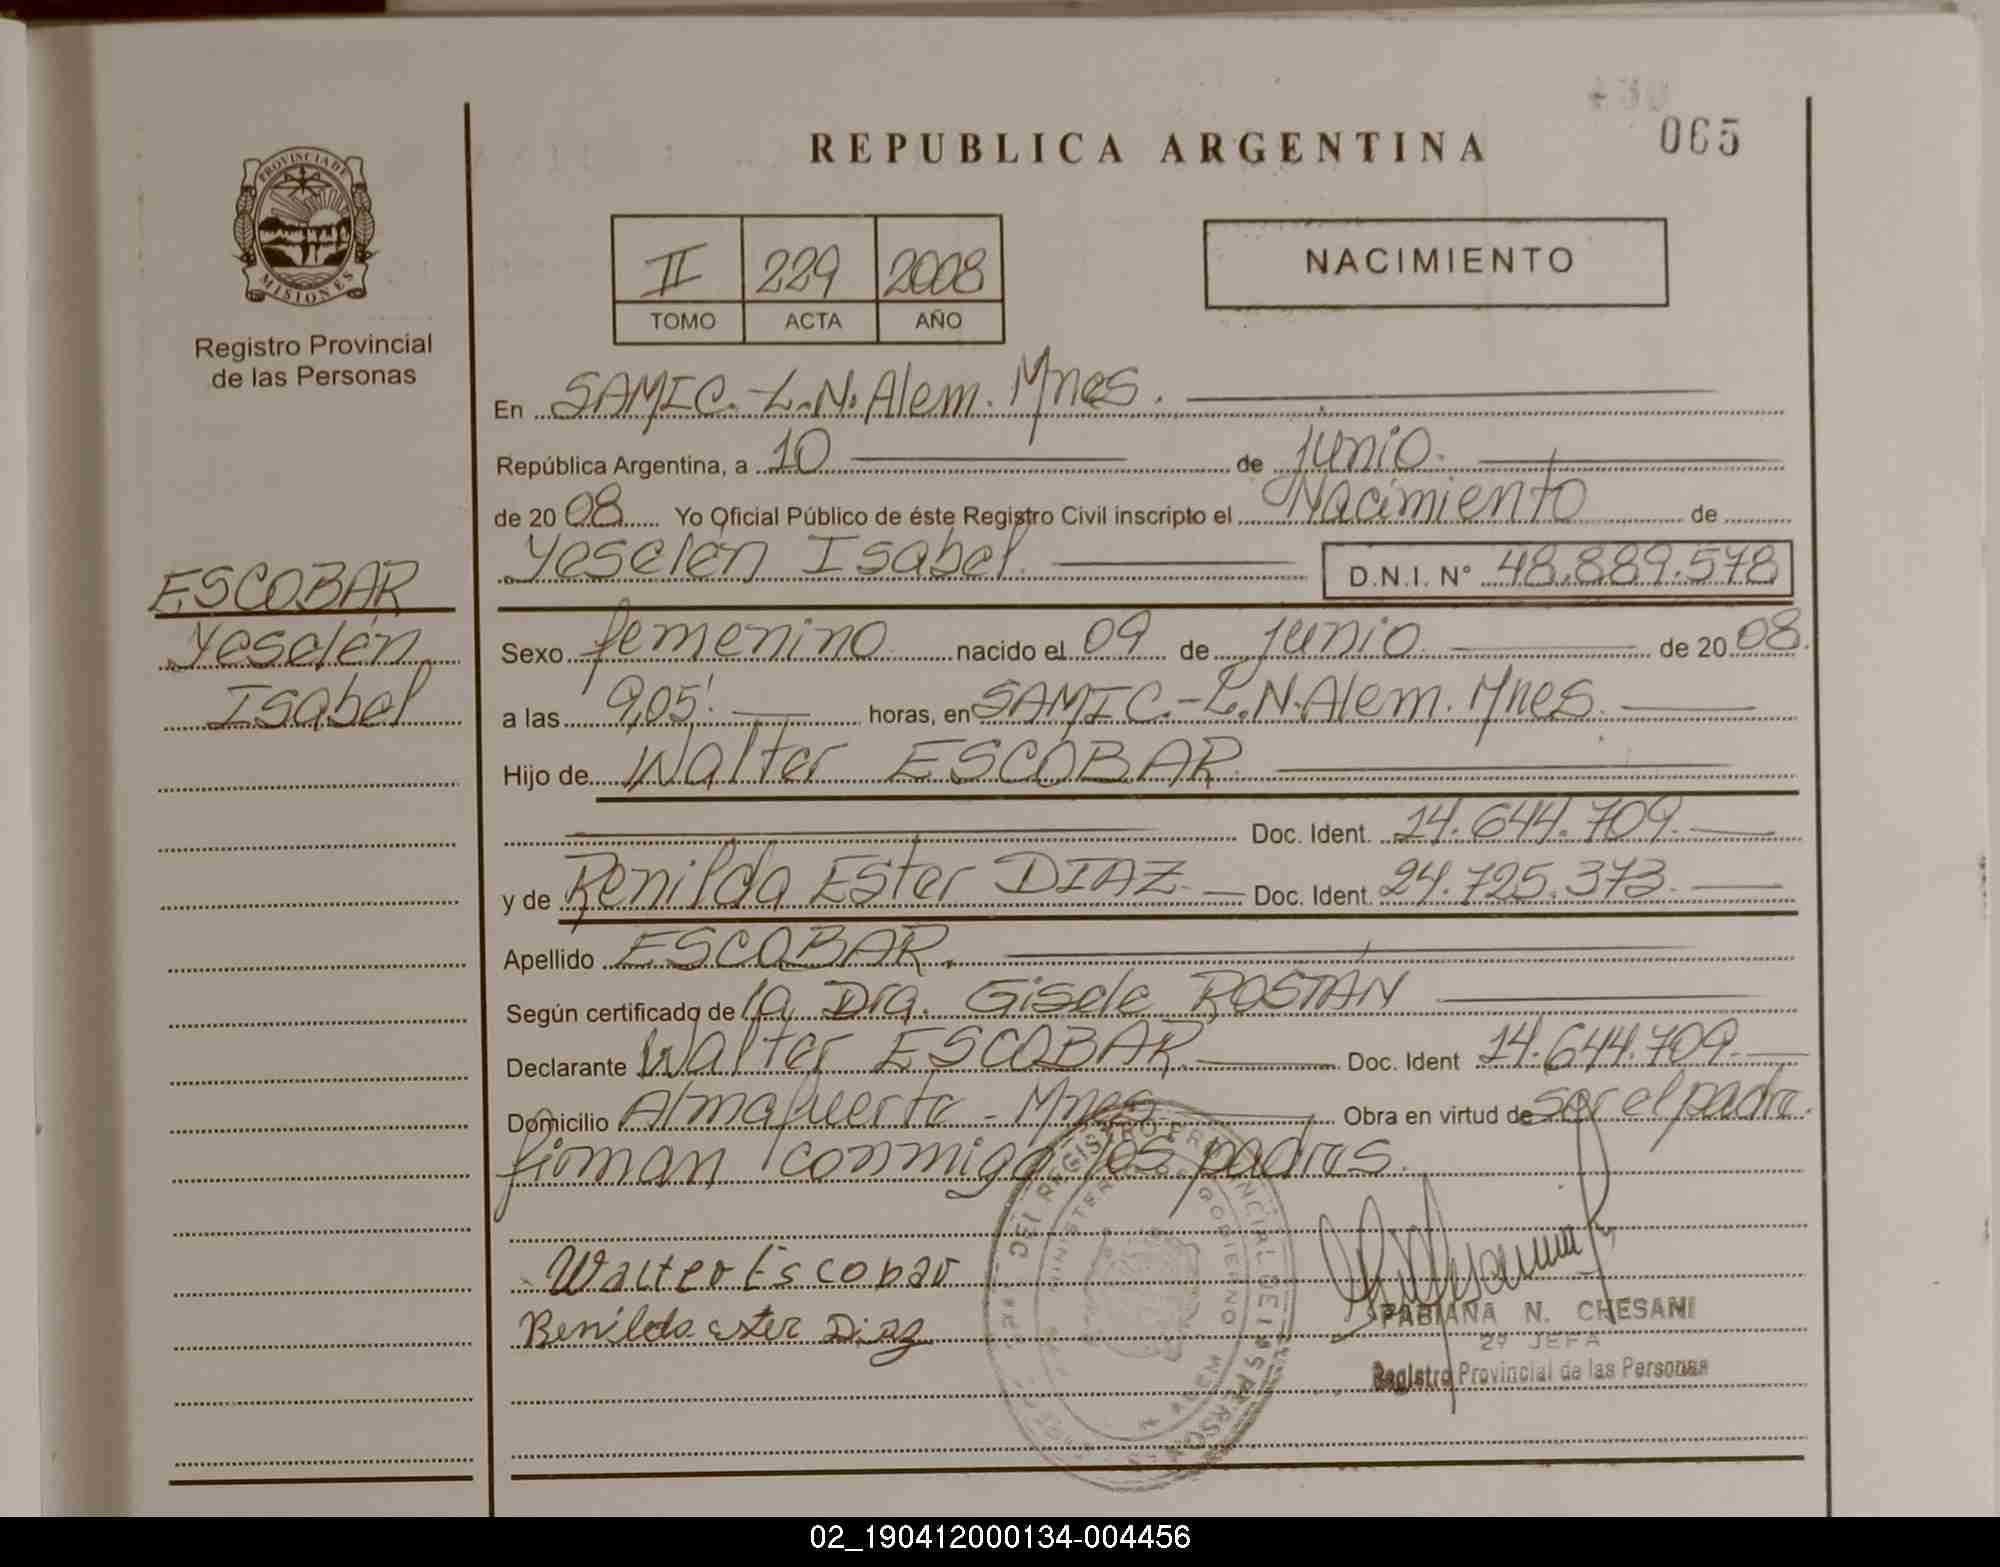 065
REPUBLICA ARGENTINA
PROVINCIA DE
MISIONES
Registro Provincial
de las Personas
II 229 2008
TOMO ACTA AÑO
NACIMIENTO
En SAMIC.-L.N.Alem. Mnes.
República Argentina, a 10 de junio.
de 20 08 Yo Oficial Público de éste Registro Civil inscripto el Nacimiento de
Yesclén Isabel. D.N.I. N° 48.889.578
ESCOBAR
Yesclén
Isabel
Sexo femenino nacido el 09 de junio de 20 08.
a las 9,05'. horas, en SAMIC.-L.N.Alem. Mnes.
Hijo de Walter ESCOBAR.
Doc. Ident. 14.644.709.
y de Benilda Ester DIAZ. Doc. Ident. 24.725.373.
Apellido ESCOBAR.
Según certificado de la Dra. Gisele ROSTÁN
Declarante Walter ESCOBAR. Doc. Ident 14.644.709.
Domicilio Almafuerte - Mnes Obra en virtud de ser el padre.
firman conmigo los padres.
Walter Escobar
Benilda ester Diaz
FABIANA N. CHESANI
2º JEFA
Registro Provincial de las Personas
02_190412000134-004456